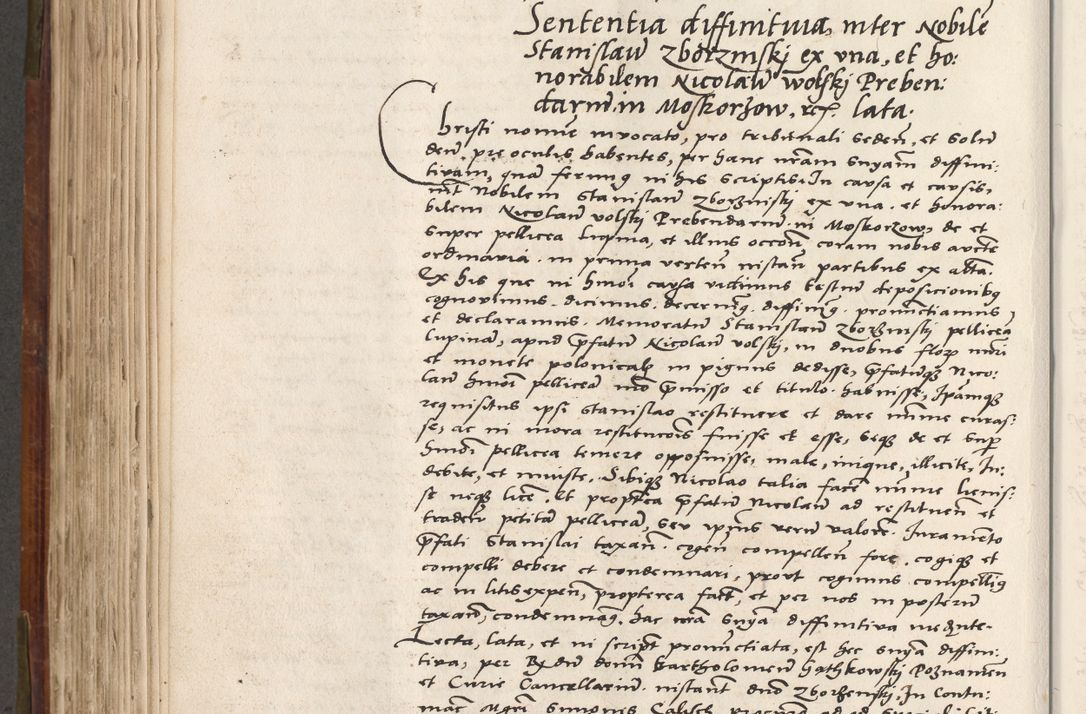 Sententia diffinitiua, inter Nobile
Stanislaū Zborzinskj ex vna, et ho:
norabilem Nicolaū wolskj Preben:
dariū in Moskorzow, rc̄. lata.
Christi nomine inuocato, pro tribunali seden̄, et Solū
deū, pre oculis habentes, per hanc nrām Snyam̄ diffini:
tiuam, quā ferimꝰ in his scriptis In causa et causis,
int̄ Nobilem Stanislaū Zborzinskj ex vna. et honora:
bilem Nicolaū volskj Prebendariū in Moskorzow, de et
super pellicea lupina, et illius occoñ, coram nobis aucte
ordinaria. in prima verteñ instañ partibus ex alta.
Ex his que in hmōi causa vidimus testiū deposicionibꝰ
cognouimus. dicimus. decernimꝰ. diffinimꝰ. pronunctiamus
et declaramus. Memoratū Stanislaū Zborzinskj pelliceā
lupinā, apud p̄fatū Nicolaū volskj, in duobus flor. nūi
et monete polonicalꝭ in pignus dedisse, p̄fatūqꝫ Nico:
laū hmōi pelliceā mō p̄misso et titulo. habuisse, Ipamqꝫ
requisitus ipsi Stanislao restituere et dare mīme curas:
se, ac in mora restitucōis fuisse et esse, seqꝫ de et sup̄
hmōi pellicea temere opposuisse, male, inique, illicite, In:
debite, et iniuste. Sibiqꝫ Nicolao talia facē mīme licuis:
se neqꝫ licē. Et propterea p̄fatū Nicolaū ad restitueñ et
tradeñ petitā pelliceā, seu ipīus verū valorē. Iuramento
p̄fati Stanislai taxañ. cogeñ compelleñ fore. cogiqꝫ et
compelli debere et condemnari, prout cogimus compellimꝰ
ac in litis expeñ, propterea fact̄, et per nos in posterū
taxañ, condemnamꝰ. hac nrā Snyā diffinitiua mediante.
Lecta, lata, et in script̄ pronunctiata, est hec Snyā diffini:
tiua, per R̄ dū domī Bartholomeū Gathkowskj Poznanieñ
et Curie Cancellariū. instant̄ dnō Zborzenskj, In contu:
maciā Mgri Simonis